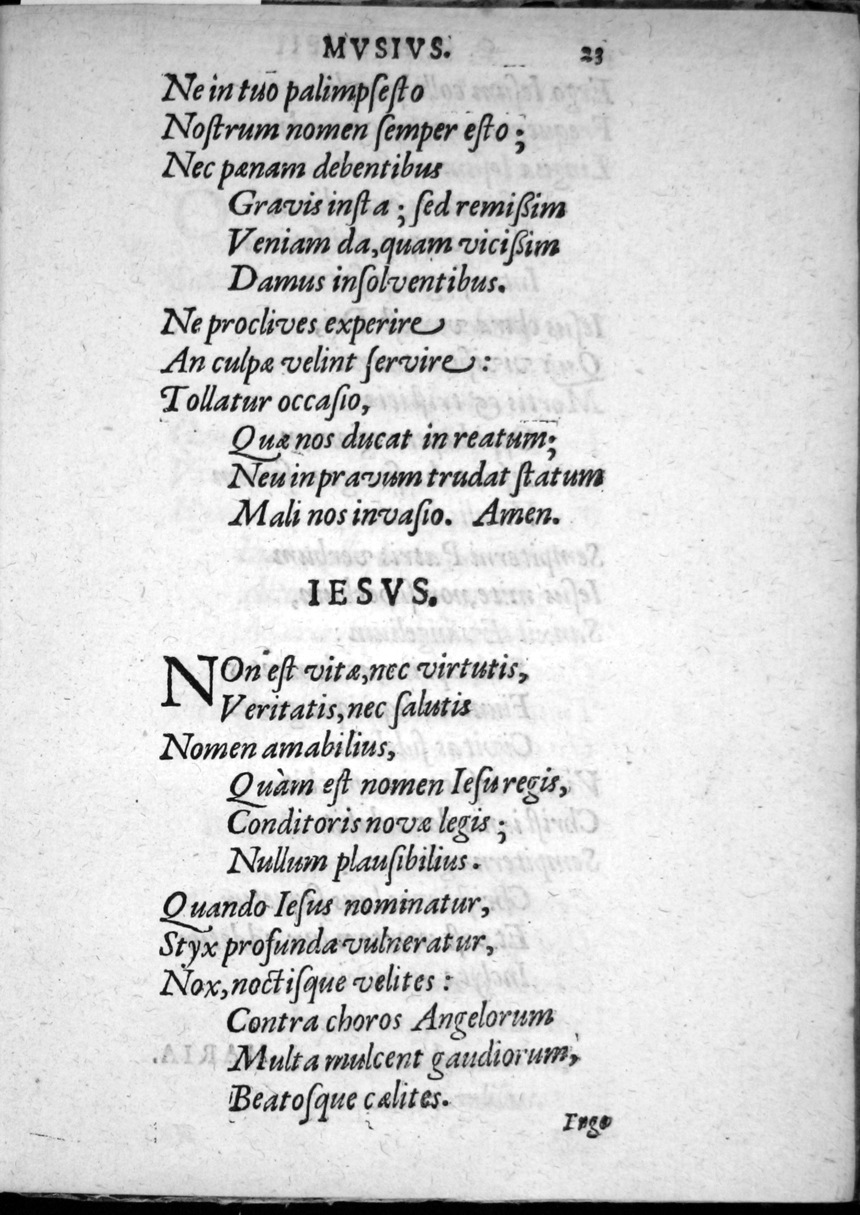 MVSIVS. 23
Ne in tuo palimpsesto
Nostrum nomen semper esto;
Nec pœnam debentibus
Gravis insta; sed remißim
Veniam da, quam vicißim
Damus insolventibus.
Ne proclives experire
An culpæ velint servire:
Tollatur occasio,
Quæ nos ducat in reatum;
Neu in pravum trudat statum
Mali nos invasio. Amen.
IESVS.
NOn est vitæ, nec virtutis,
Veritatis, nec salutis
Nomen amabilius,
Quàm est nomen Iesu regis,
Conditoris novæ legis;
Nullum plausibilius.
Quando Iesus nominatur,
Styx profunda vulneratur,
Nox, noctisque velites:
Contra choros Angelorum
Multa mulcent gaudiorum,
Beatosque cælites.